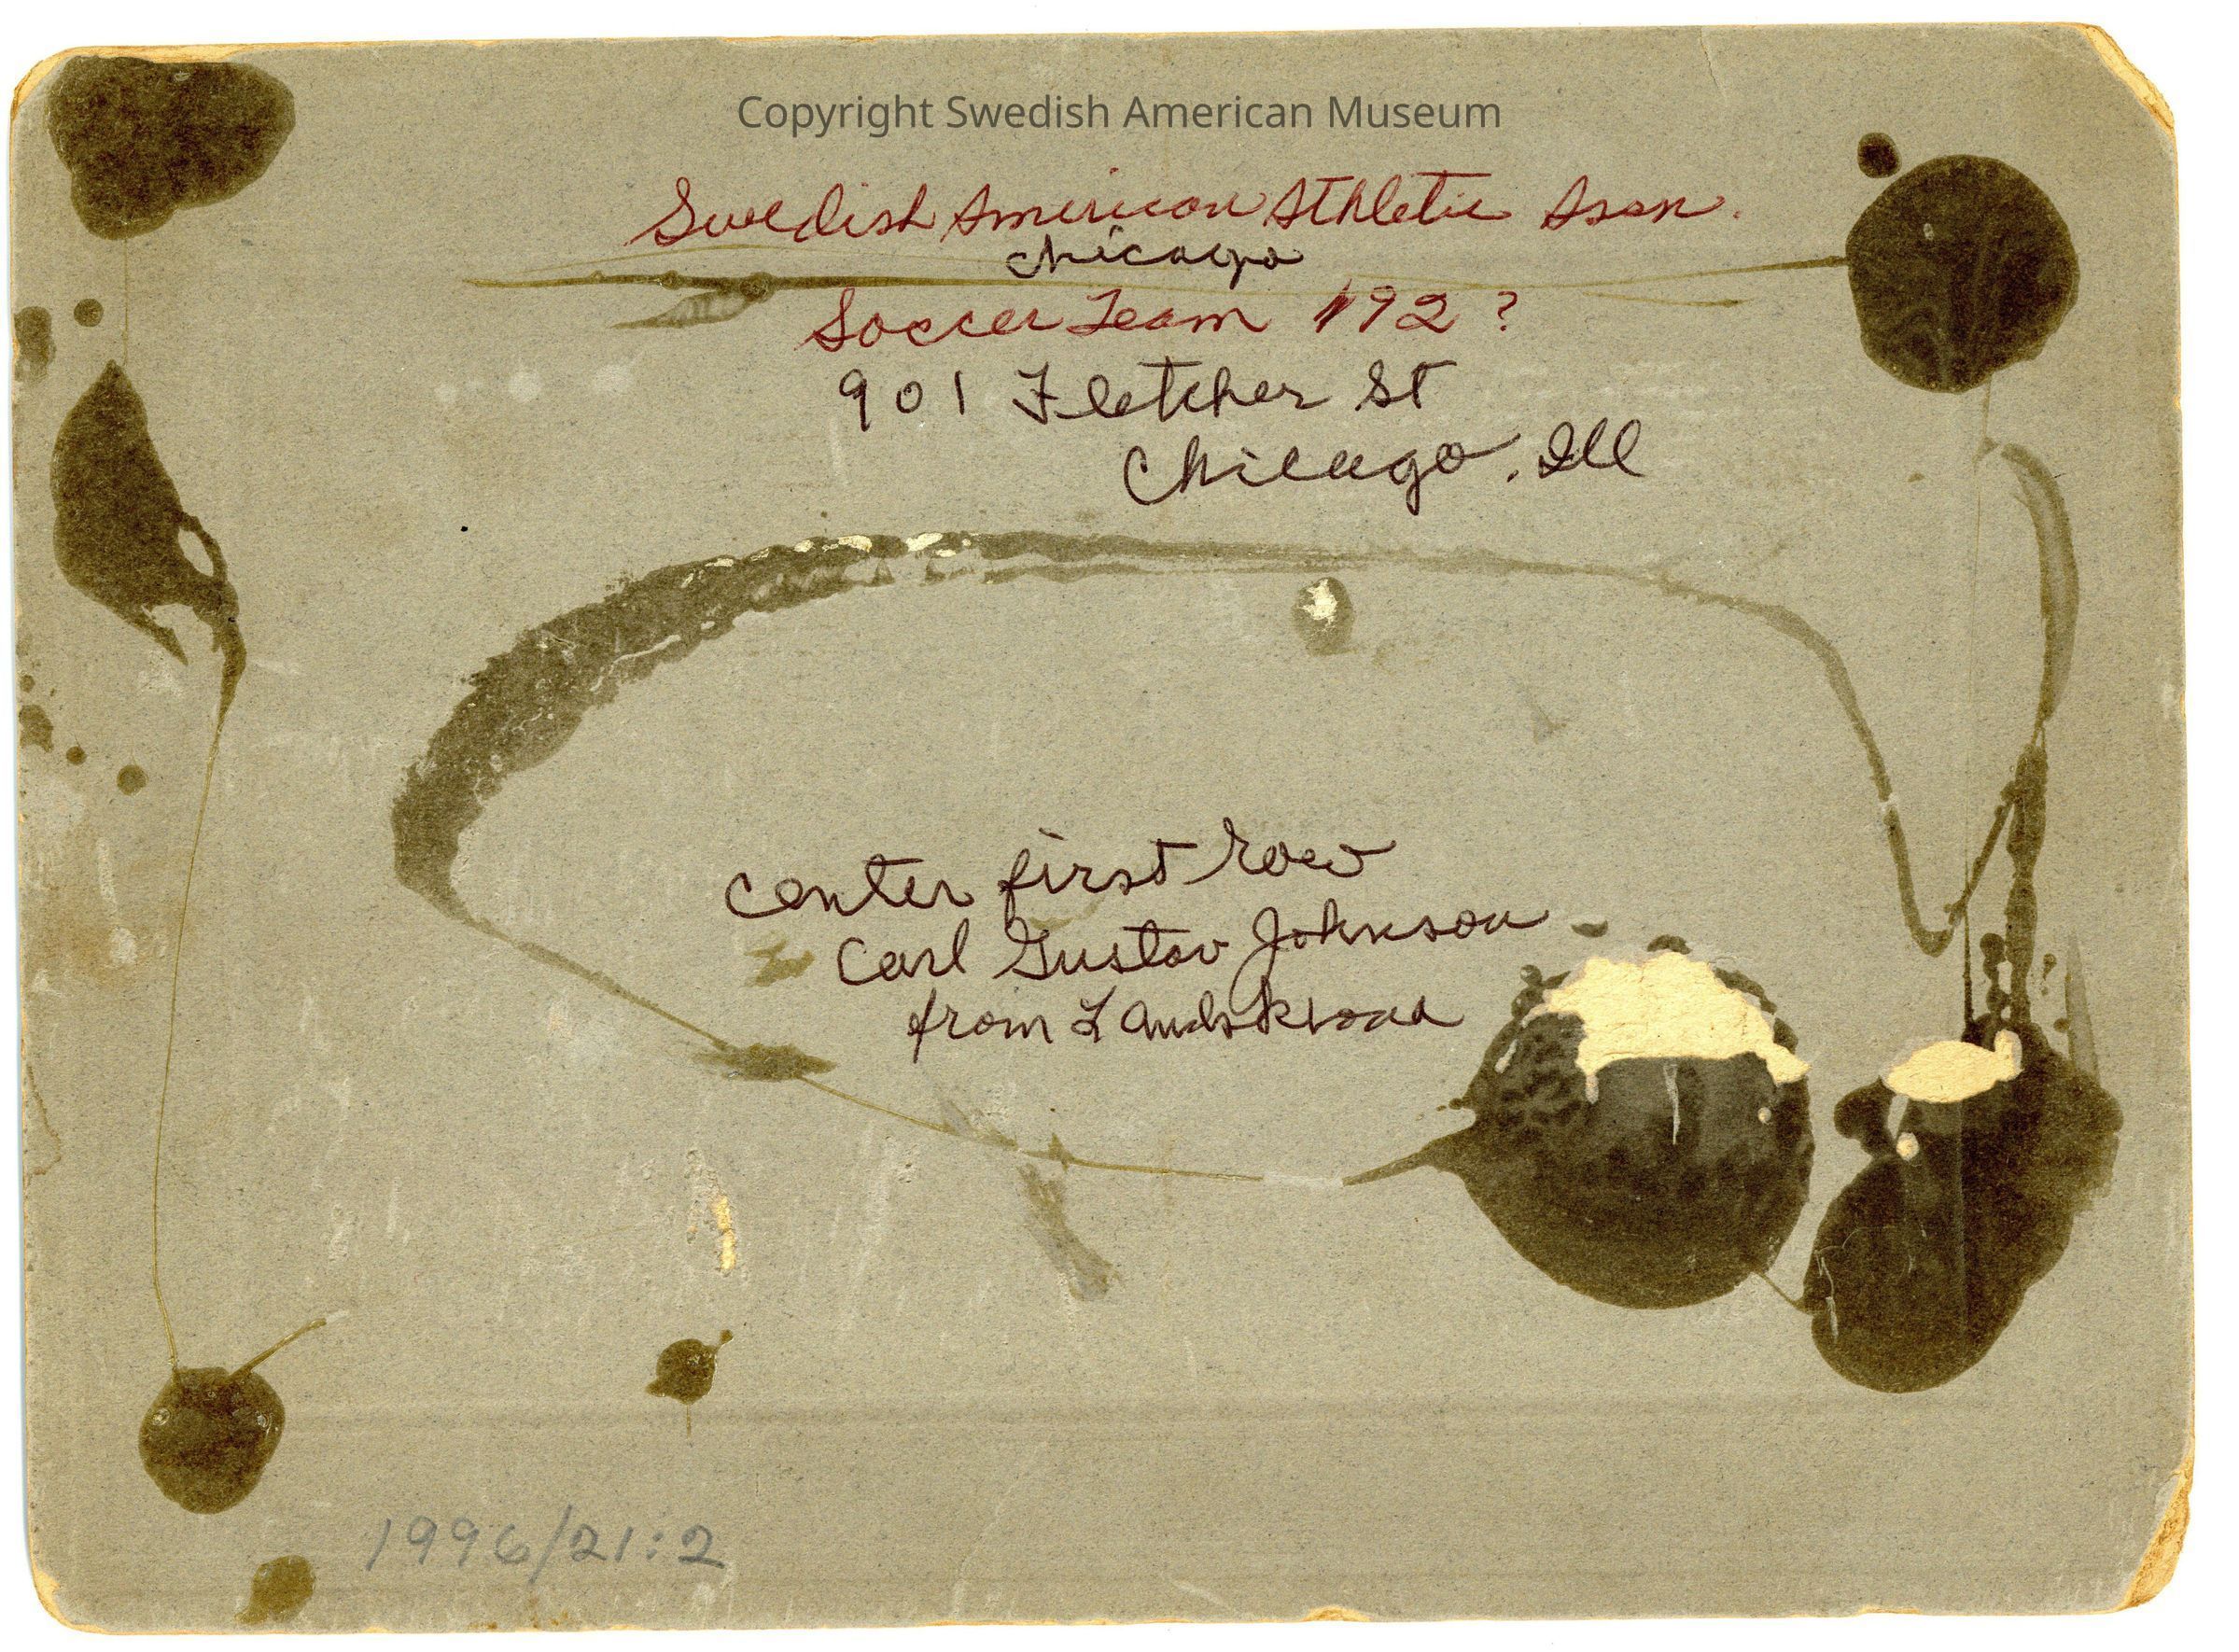 Copyright Swedish American Museum
Swedish American Athletic Assn.
Chicago
Soccer Team 192?
901 Fletcher St
Chicago, Ill
center first row
Carl Gustav Johnson
from Landskrona
1996/21:2